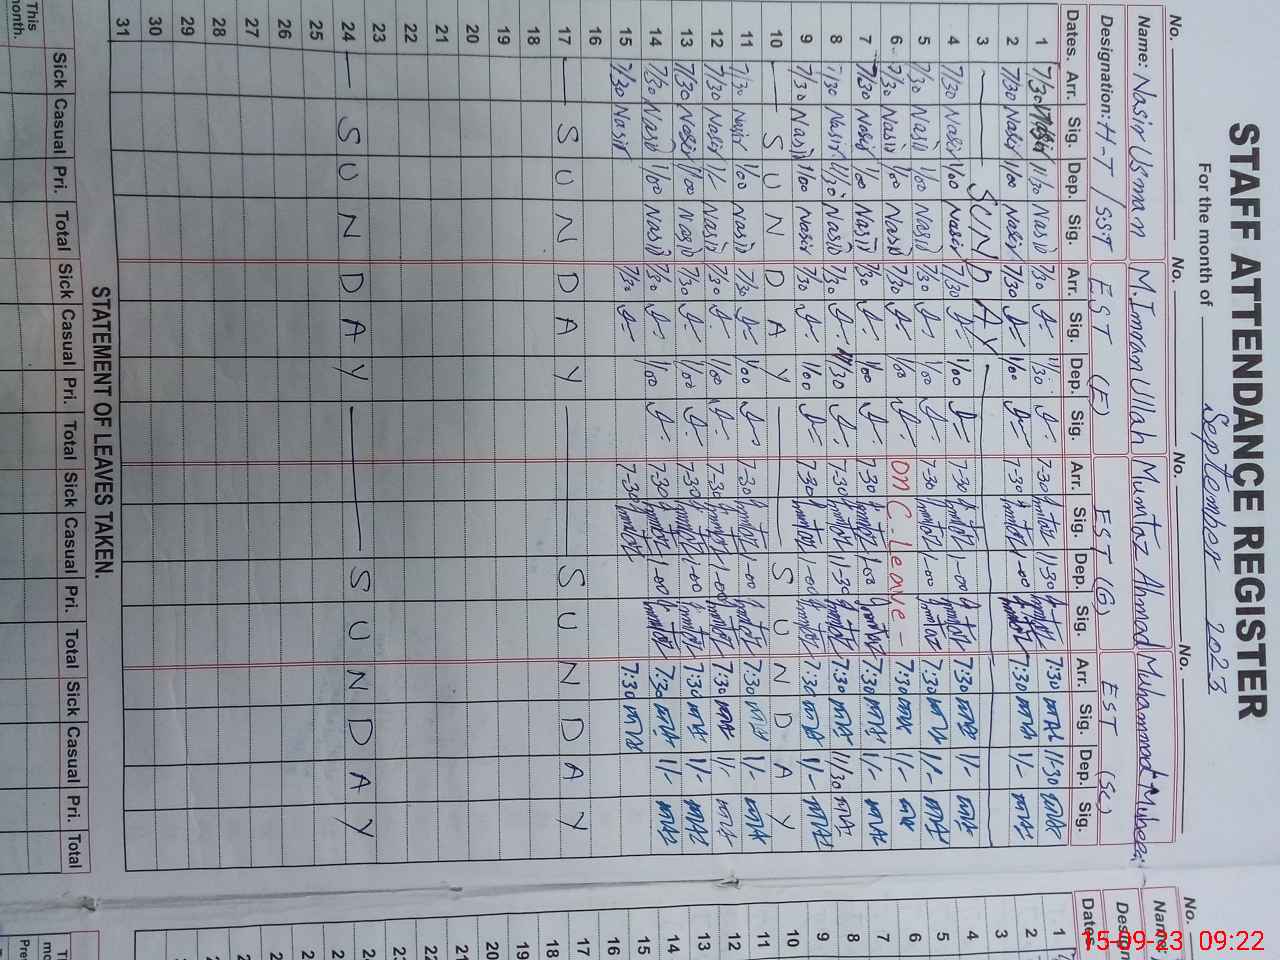 STAFF ATTENDANCE REGISTER
For the month of September 2023
No. No. No. No.
Name: Nasir Usman M. Imran Ullah Mumtaz Ahmad Muhammad Mubeen
Designation: H-T / SST EST (E) EST (G) EST (SC)
Dates. Arr. Sig. Dep. Sig. Arr. Sig. Dep. Sig. Arr. Sig. Dep. Sig. Arr. Sig. Dep. Sig.
1 7/30 Nasir 11/30 Nasir 7/30 11/30 7-30 Mumtaz 11-30 Mumtaz 7:30 MA 11-30 MA
2 7/30 Nasir 1/00 Nasir 7/30 1/00 7-30 Mumtaz 1-00 Mumtaz 7:30 MA 1/- MA
3 SUNDAY
4 7/30 Nasir 1/00 Nasir 7/30 1/00 7-30 Mumtaz 1-00 Mumtaz 7:30 MA 1/- MA
5 7/30 Nasir 1/00 Nasir 7/30 1/00 7-30 Mumtaz 1-00 Mumtaz 7:30 MA 1/- MA
6 7/30 Nasir 1/00 Nasir 7/30 1/00 on C. Leave - 7:30 MA 1/- MA
7 7/30 Nasir 1/00 Nasir 7/30 1/00 7-30 Mumtaz 1-00 Mumtaz 7:30 MA 1/- MA
8 7/30 Nasir 11/30 Nasir 7/30 11/30 7-30 Mumtaz 11-30 Mumtaz 7:30 MA 11/30 MA
9 7/30 Nasir 1/00 Nasir 7/30 1/00 7-30 Mumtaz 1-00 Mumtaz 7:30 MA 1/- MA
10 SUNDAY SUNDAY
11 7/30 Nasir 1/00 Nasir 7/30 1/00 7-30 Mumtaz 1-00 Mumtaz 7:30 MA 1/- MA
12 7/30 Nasir 1/- Nasir 7/30 1/00 7-30 Mumtaz 1-00 Mumtaz 7:30 MA 1/- MA
13 7/30 Nasir 1/00 Nasir 7/30 1/00 7-30 Mumtaz 1-00 Mumtaz 7:30 MA 1/- MA
14 7/30 Nasir 1/00 Nasir 7/30 1/00 7-30 Mumtaz 1-00 Mumtaz 7:30 MA 1/- MA
15 7/30 Nasir 7/30 7-30 Mumtaz 7:30 MA
16
17 SUNDAY SUNDAY
18
19
20
21
22
23
24 SUNDAY SUNDAY
25
26
27
28
29
30
31
STATEMENT OF LEAVES TAKEN.
Sick Casual Pri. Total Sick Casual Pri. Total Sick Casual Pri. Total Sick Casual Pri. Total
This month.
No.
Name:
Design
Date
1
2
3
4
5
6
7
8
9
10
11
12
13
14
15
16
17
18
19
20
21
15-09-23 09:22